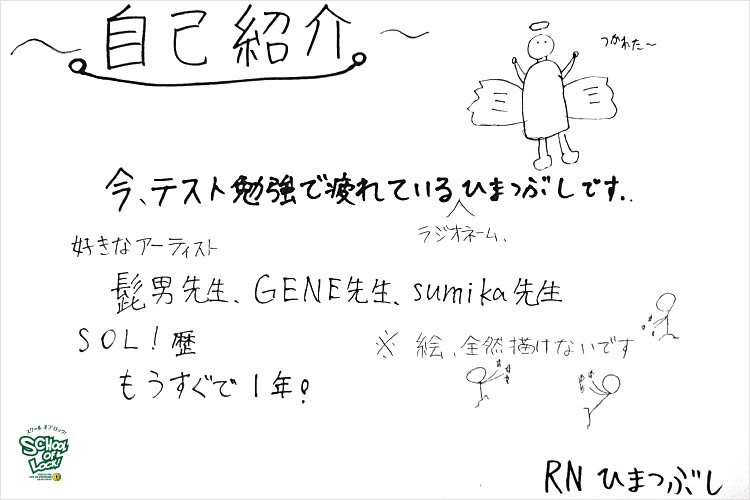 〜自己紹介〜
つかれた〜
今、テスト勉強で疲れているひまつぶしです..
ラジオネーム、
好きなアーティスト
髭男先生、GENE先生、sumika先生
SOL!歴
※ 絵、全然描けないです
もうすぐで1年!
スクール オブ ロック!
SCHOOL OF LOCK!
RN ひまつぶし